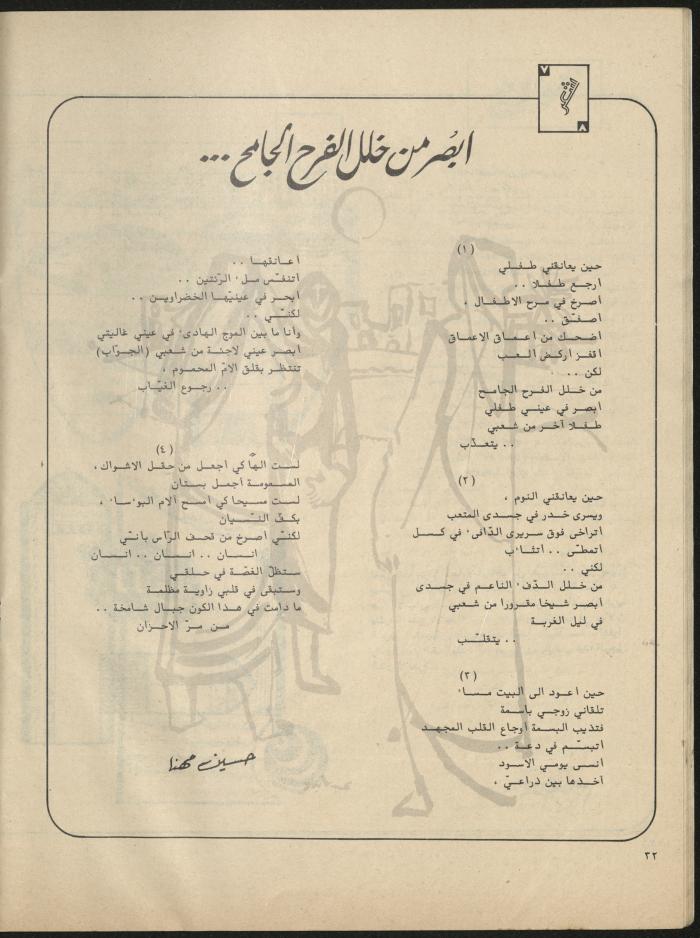 شعر
٧
٨
ابصُر من خلل الفرح الجامح ...
(١)
حين يعانقني طفلي
ارجع طفلا ..
اصرخ في مرح الاطفال ،
اصفّق ..
اضحك من اعماق الاعماق
اقفز اركض العب
لكن ..
من خلل الفرح الجامح
ابصر في عيني طفلي
طفلا آخر من شعبي
.. يتعذّب
(٢)
حين يعانقني النوم ،
ويسرى خدر في جسدى المتعب
اتراخى فوق سريرى الدّافىء في كسل
اتمطّى .. اتثاءب
لكني ..
من خلل الدفء الناعم في جسدى
ابصر شيخا مقرورا من شعبي
في ليل الغربة
.. يتقلّب
(٣)
حين اعود الى البيت مساء
تلقاني زوجي باسمة
فتذيب البسمة اوجاع القلب المجهد
اتبسّم في دعة ..
انسى يومي الاسود
آخذها بين ذراعيّ ،
اعانقها ..
اتنفّس ملء الرّئتين ..
ابحر في عينيّها الخضراوين ..
لكنّي ..
وانا ما بين الموج الهادىء في عيني غاليتي
ابصر عيني لاجئة من شعبي (الجرّاب)
تنتظر بقلق الامّ المحموم ،
.. رجوع الغيّاب
(٤)
لست الهاً كي اجعل من حقل الاشواك،
المسمومة اجمل بستان
لست مسيحا كي امسح آلام البوءساء ،
بكفّ النسيان
لكنّي اصرخ من قحف الرّأس بأنّي
انسان .. انسان .. انسان
ستظلّ الغصّة في حلقي
وستبقى في قلبي زاوية مظلمة
ما دامت في هذا الكون جبال شامخة ..
من مرّ الاحزان
حسين مهنا
٣٢